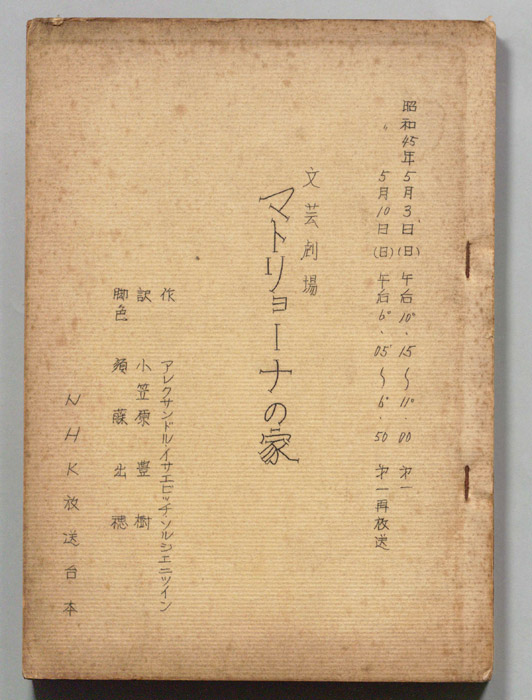 昭和45年5月3日(日)午后10°.15〜11°00 第一
5月10日(日)午后6°.05〜6°.50 第一再放送
文芸劇場
マトリョーナの家
作 アレクサンドル・イサエビッチ・ソルジェニツイン
訳 小笠原豊樹
脚色 須藤出穂
NHK放送台本